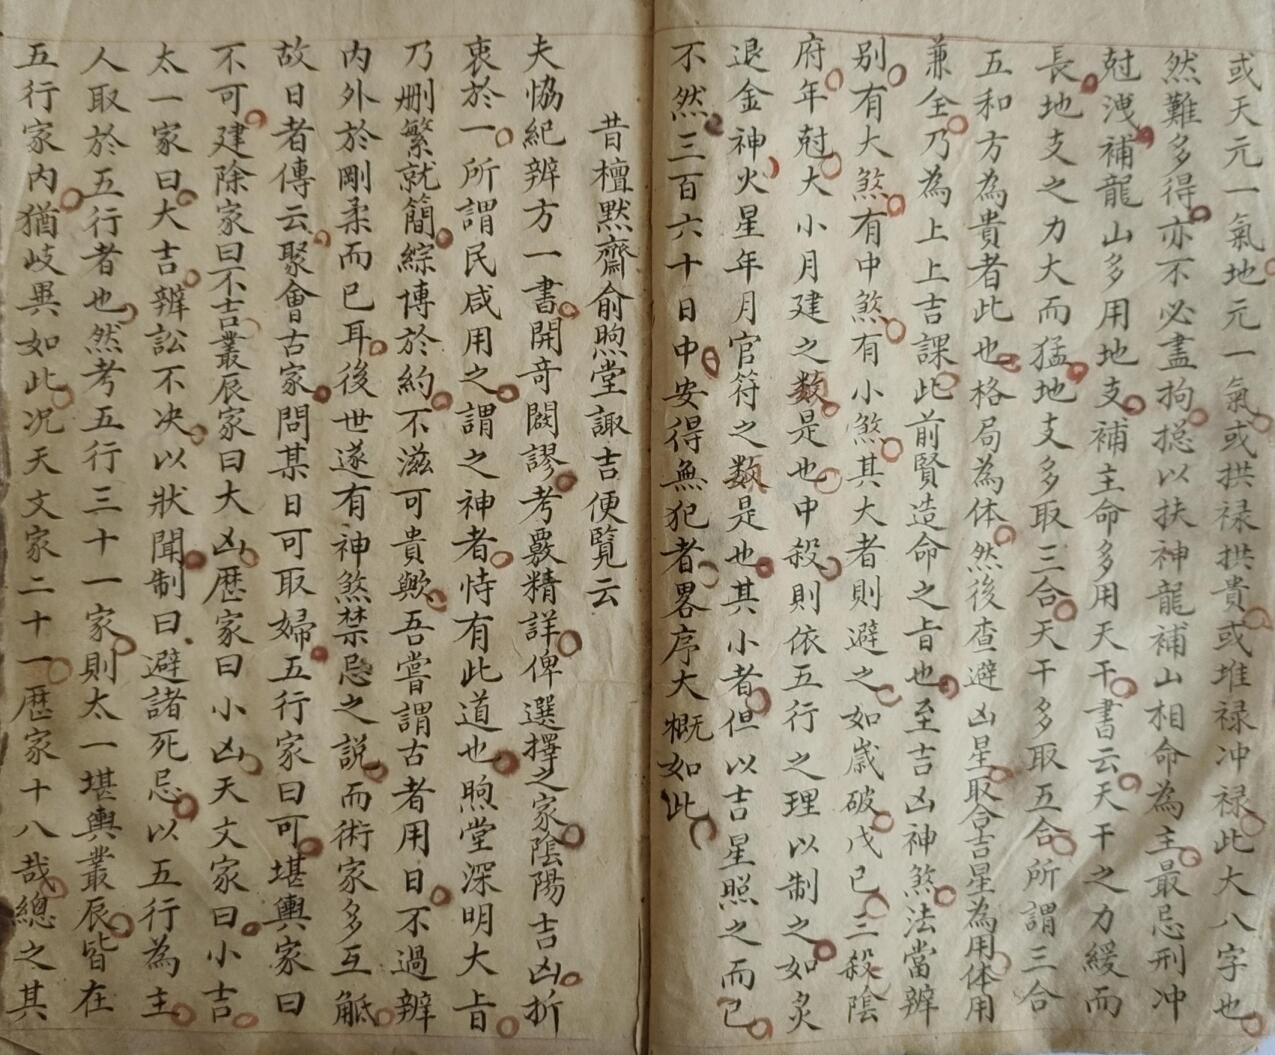 或天元一氣地元一氣或拱祿拱貴或堆祿冲祿此大八字也
然難多得亦不必盡拘捴以扶神龍補山相命為主最忌刑冲
尅洩補龍山多用地支補主命多用天干書云天干之力緩而
長地支之力大而猛地支多取三合天干多取五合所謂三合
五和方為貴者此也格局為体然後查避凶星取合吉星為用体用
兼全乃為上上吉課此前賢造命之旨也至吉凶神煞法當辨
别有大煞有中煞有小煞其大者則避之如歲破戊己三殺陰
府年尅大小月建之数是也中殺則依五行之理以制之如炙
退金神火星年月官符之数是也其小者但以吉星照之而已
不然三百六十日中安得無犯者畧序大概如此
昔檀默齋俞煦堂諏吉便覧云
夫恊紀辨方一書開奇闢謬考覈精詳俾選擇之家陰陽吉凶折
衷於一所謂民咸用之謂之神者恃有此道也煦堂深明大旨
乃删繁就簡綜博於約不滋可貴歟吾嘗謂古者用日不過辨
内外於剛柔而已耳後世遂有神煞禁忌之說而術家多互觝
故日者傳云聚會古家問某日可取婦五行家曰可堪輿家曰
不可建除家曰不吉叢辰家曰大凶歷家曰小凶天文家曰小吉
太一家曰大吉辨訟不决以狀聞制曰避諸死忌以五行為主
人取於五行者也然考五行三十一家則太一堪輿叢辰皆在
五行家内猶歧異如此况天文家二十一歷家十八哉總之其